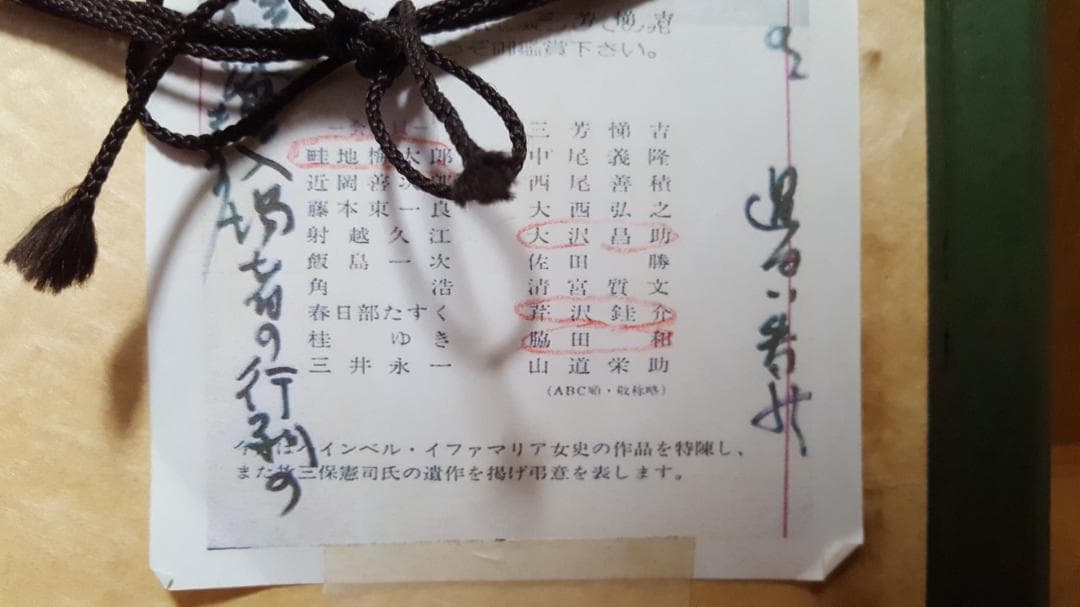 御鑑賞下さい。
畦地梅太郎
近岡善次郎
藤本東一良
射越久江
飯島一次
角 浩
春日部たすく
桂 ゆき
三井永一
三芳悌吉
中尾義隆
西尾善積
大西弘之
大沢昌助
佐田 勝
清宮質文
芹沢銈介
脇田 和
山道栄助
(ABC順・敬称略)
インベル・イファマリア女史の作品を特陳し、
また故三保憲司氏の遺作を掲げ弔意を表します。
入場者の行列の